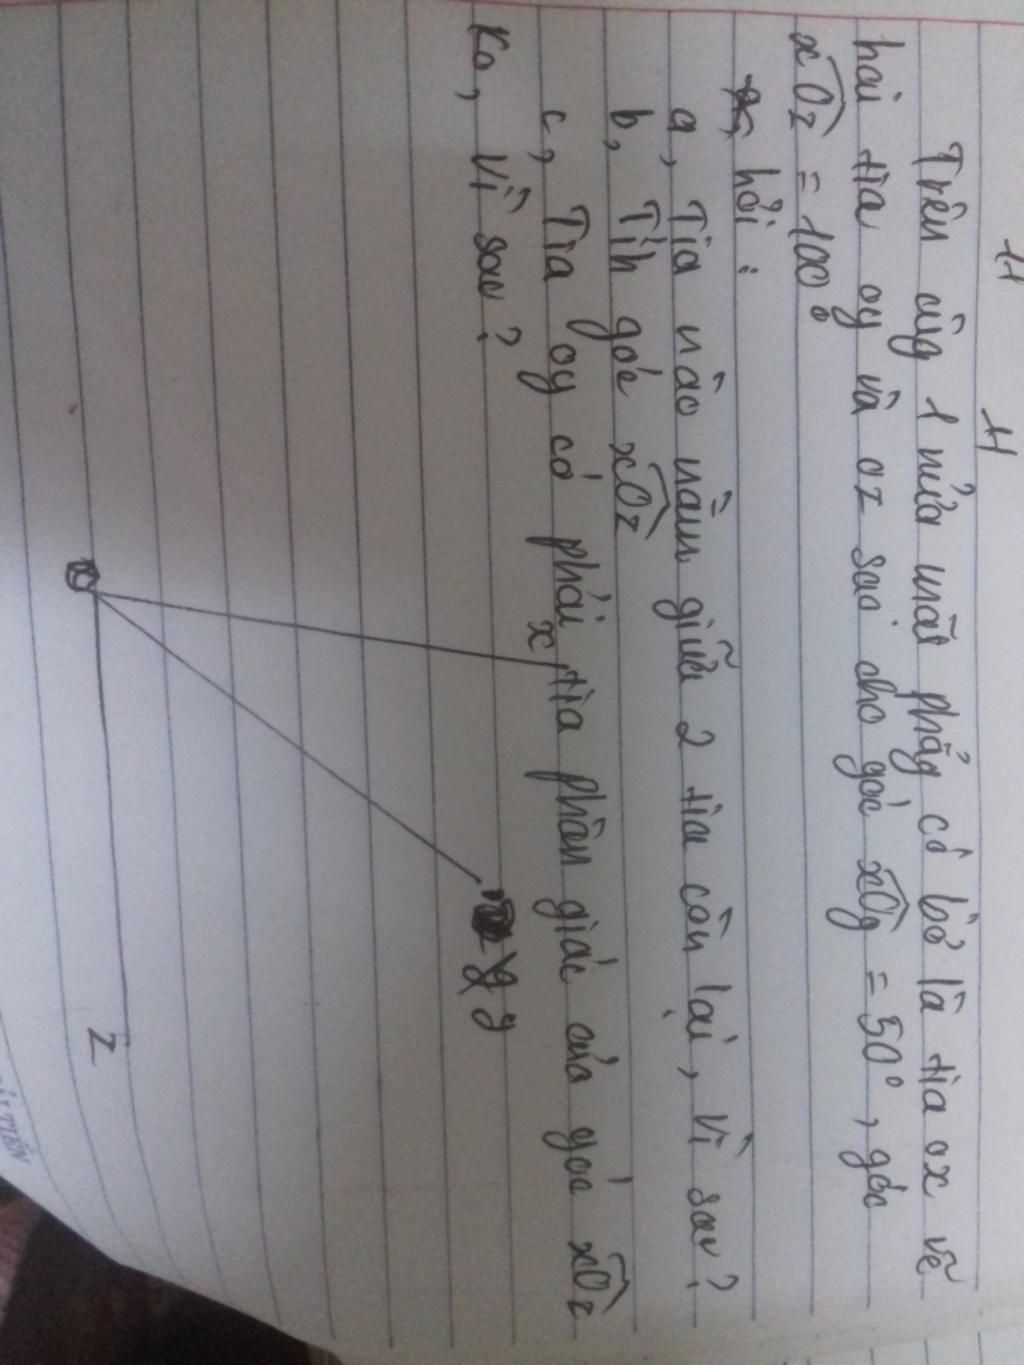 H H
Trên cùg 1 nửa mặt phẳg có bờ là tia ox vẽ
hai tia oy và oz sao cho góc xOy = 50°, góc
xOz = 100°
hỏi :
a, Tia nào nằm giữa 2 tia còn lại, vì sao?
b, Tíh góc xOz
c, Tia oy có phải tia phân giác của góc xOz
Ko, vì sao?
x
y y
O
z